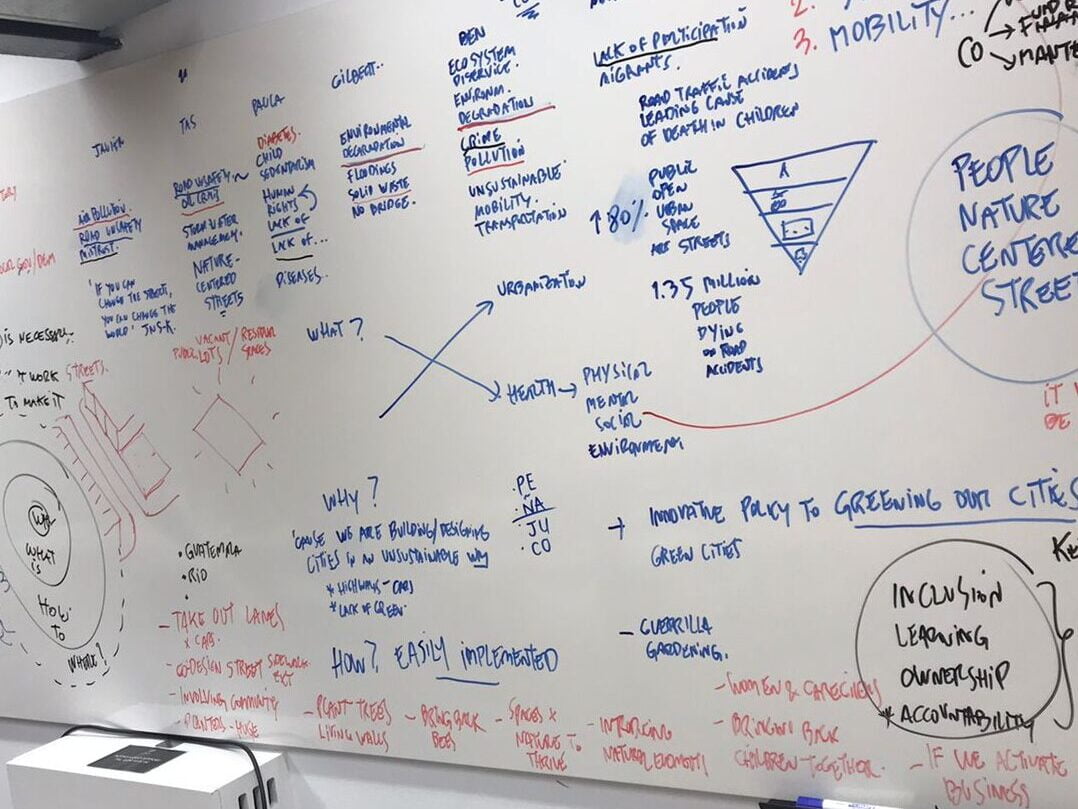 JAVIER
AIR POLLUTION.
ROAD UNSAFETY
MISTRUST.
"IF YOU CAN
CHANGE THE STREETS,
YOU CAN CHANGE THE
WORLD" JNS-K.
TAS
ROAD UNSAFETY
OIL CRISIS
STORM WATER
MANAGEMENT.
NATURE-
CENTERED
STREETS
PAULA
DIABETES.
CHILD
SEDENTARISM
HUMAN
RIGHTS
LACK OF
LACK OF...
DISEASES..
GILBERT..
ENVIRONMENTAL
DEGRADATION
FLOODINGS
SOLID WASTE
NO BRIDGE.
BEN
ECOSYSTEM
DISERVICE.
ENVIRONM.
DEGRADATION
CRIME
POLLUTION
UNSUSTAINABLE
MOBILITY.
TRANSPORTATION
LACK OF PARTICIPATION
MIGRANTS.
ROAD TRAFFIC ACCIDENTS
LEADING CAUSE
OF DEATH IN CHILDREN
↑80%
PUBLIC
OPEN
URBAN
SPACE
ARE STREETS
1.35 MILLION
PEOPLE
DYING
ON ROAD
ACCIDENTS
2.
3. MOBILITY...
CO
PEOPLE
NATURE
CENTERED
STREET
IS NECESSARY
WORK STREETS.
TO MAKE IT
WHAT
IS
HOW
TO
WHERE?
VACANT / RESIDUAL
PUBLIC LOTS / SPACES
WHAT?
URBANIZATION
HEALTH → PHYSICAL
MENTAL
SOCIAL
ENVIRONMENTAL
WHY?
'CAUSE WE ARE BUILDING/DESIGNING
CITIES IN AN UNSUSTAINABLE WAY
* HIGHWAYS - CARS
* LACK OF GREEN.
· PE
· ÑA
· JU
· CO
+ INNOVATIVE POLICY TO GREENING OUR CITIES
GREEN CITIES
- GUERRILLA
GARDENING.
INCLUSION
LEARNING
OWNERSHIP
* ACCOUNTABILITY
• GUATEMALA
• RIO
- TAKE OUT LANES
x CARS.
- CO-DESIGN STREET SIDEWALK
EXT
- INVOLVING COMMUNITY
- PLANTERS - HUGE
HOW? EASILY IMPLEMENTED
- PLANT TREES
LIVING WALLS
- BRING BACK
BEES
- SPACES x
NATURE TO
THRIVE
- INTRODUCING
NATURAL ELEMENTS
- WOMEN & CAREGIVERS
- BRINGING BACK
CHILDREN-TOGETHER.
- IF WE ACTIVATE
BUSINESS